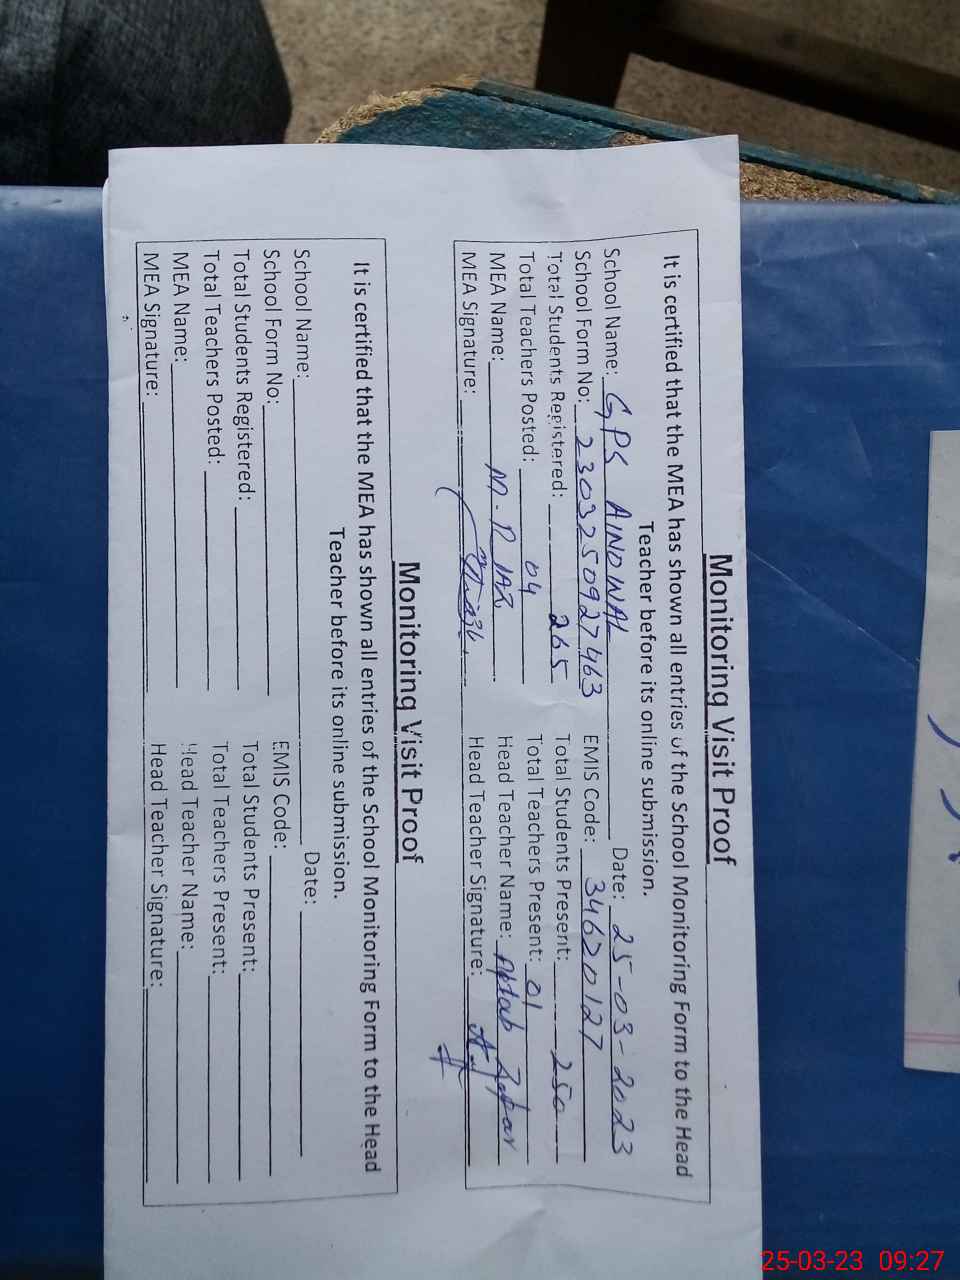 Monitoring Visit Proof
It is certified that the MEA has shown all entries of the School Monitoring Form to the Head
Teacher before its online submission.
School Name: GPS AINOWAL Date: 25-03-2023
School Form No: 2303250927463 EMIS Code: 34620127
Total Students Registered: 265 Total Students Present: 250
Total Teachers Posted: 04 Total Teachers Present: 01
MEA Name: M. RIAZ Head Teacher Name: Aftab Zafar
MEA Signature: Head Teacher Signature:
Monitoring Visit Proof
It is certified that the MEA has shown all entries of the School Monitoring Form to the Head
Teacher before its online submission.
School Name: Date:
School Form No: EMIS Code:
Total Students Registered: Total Students Present:
Total Teachers Posted: Total Teachers Present:
MEA Name: Head Teacher Name:
MEA Signature: Head Teacher Signature:
25-03-23 09:27